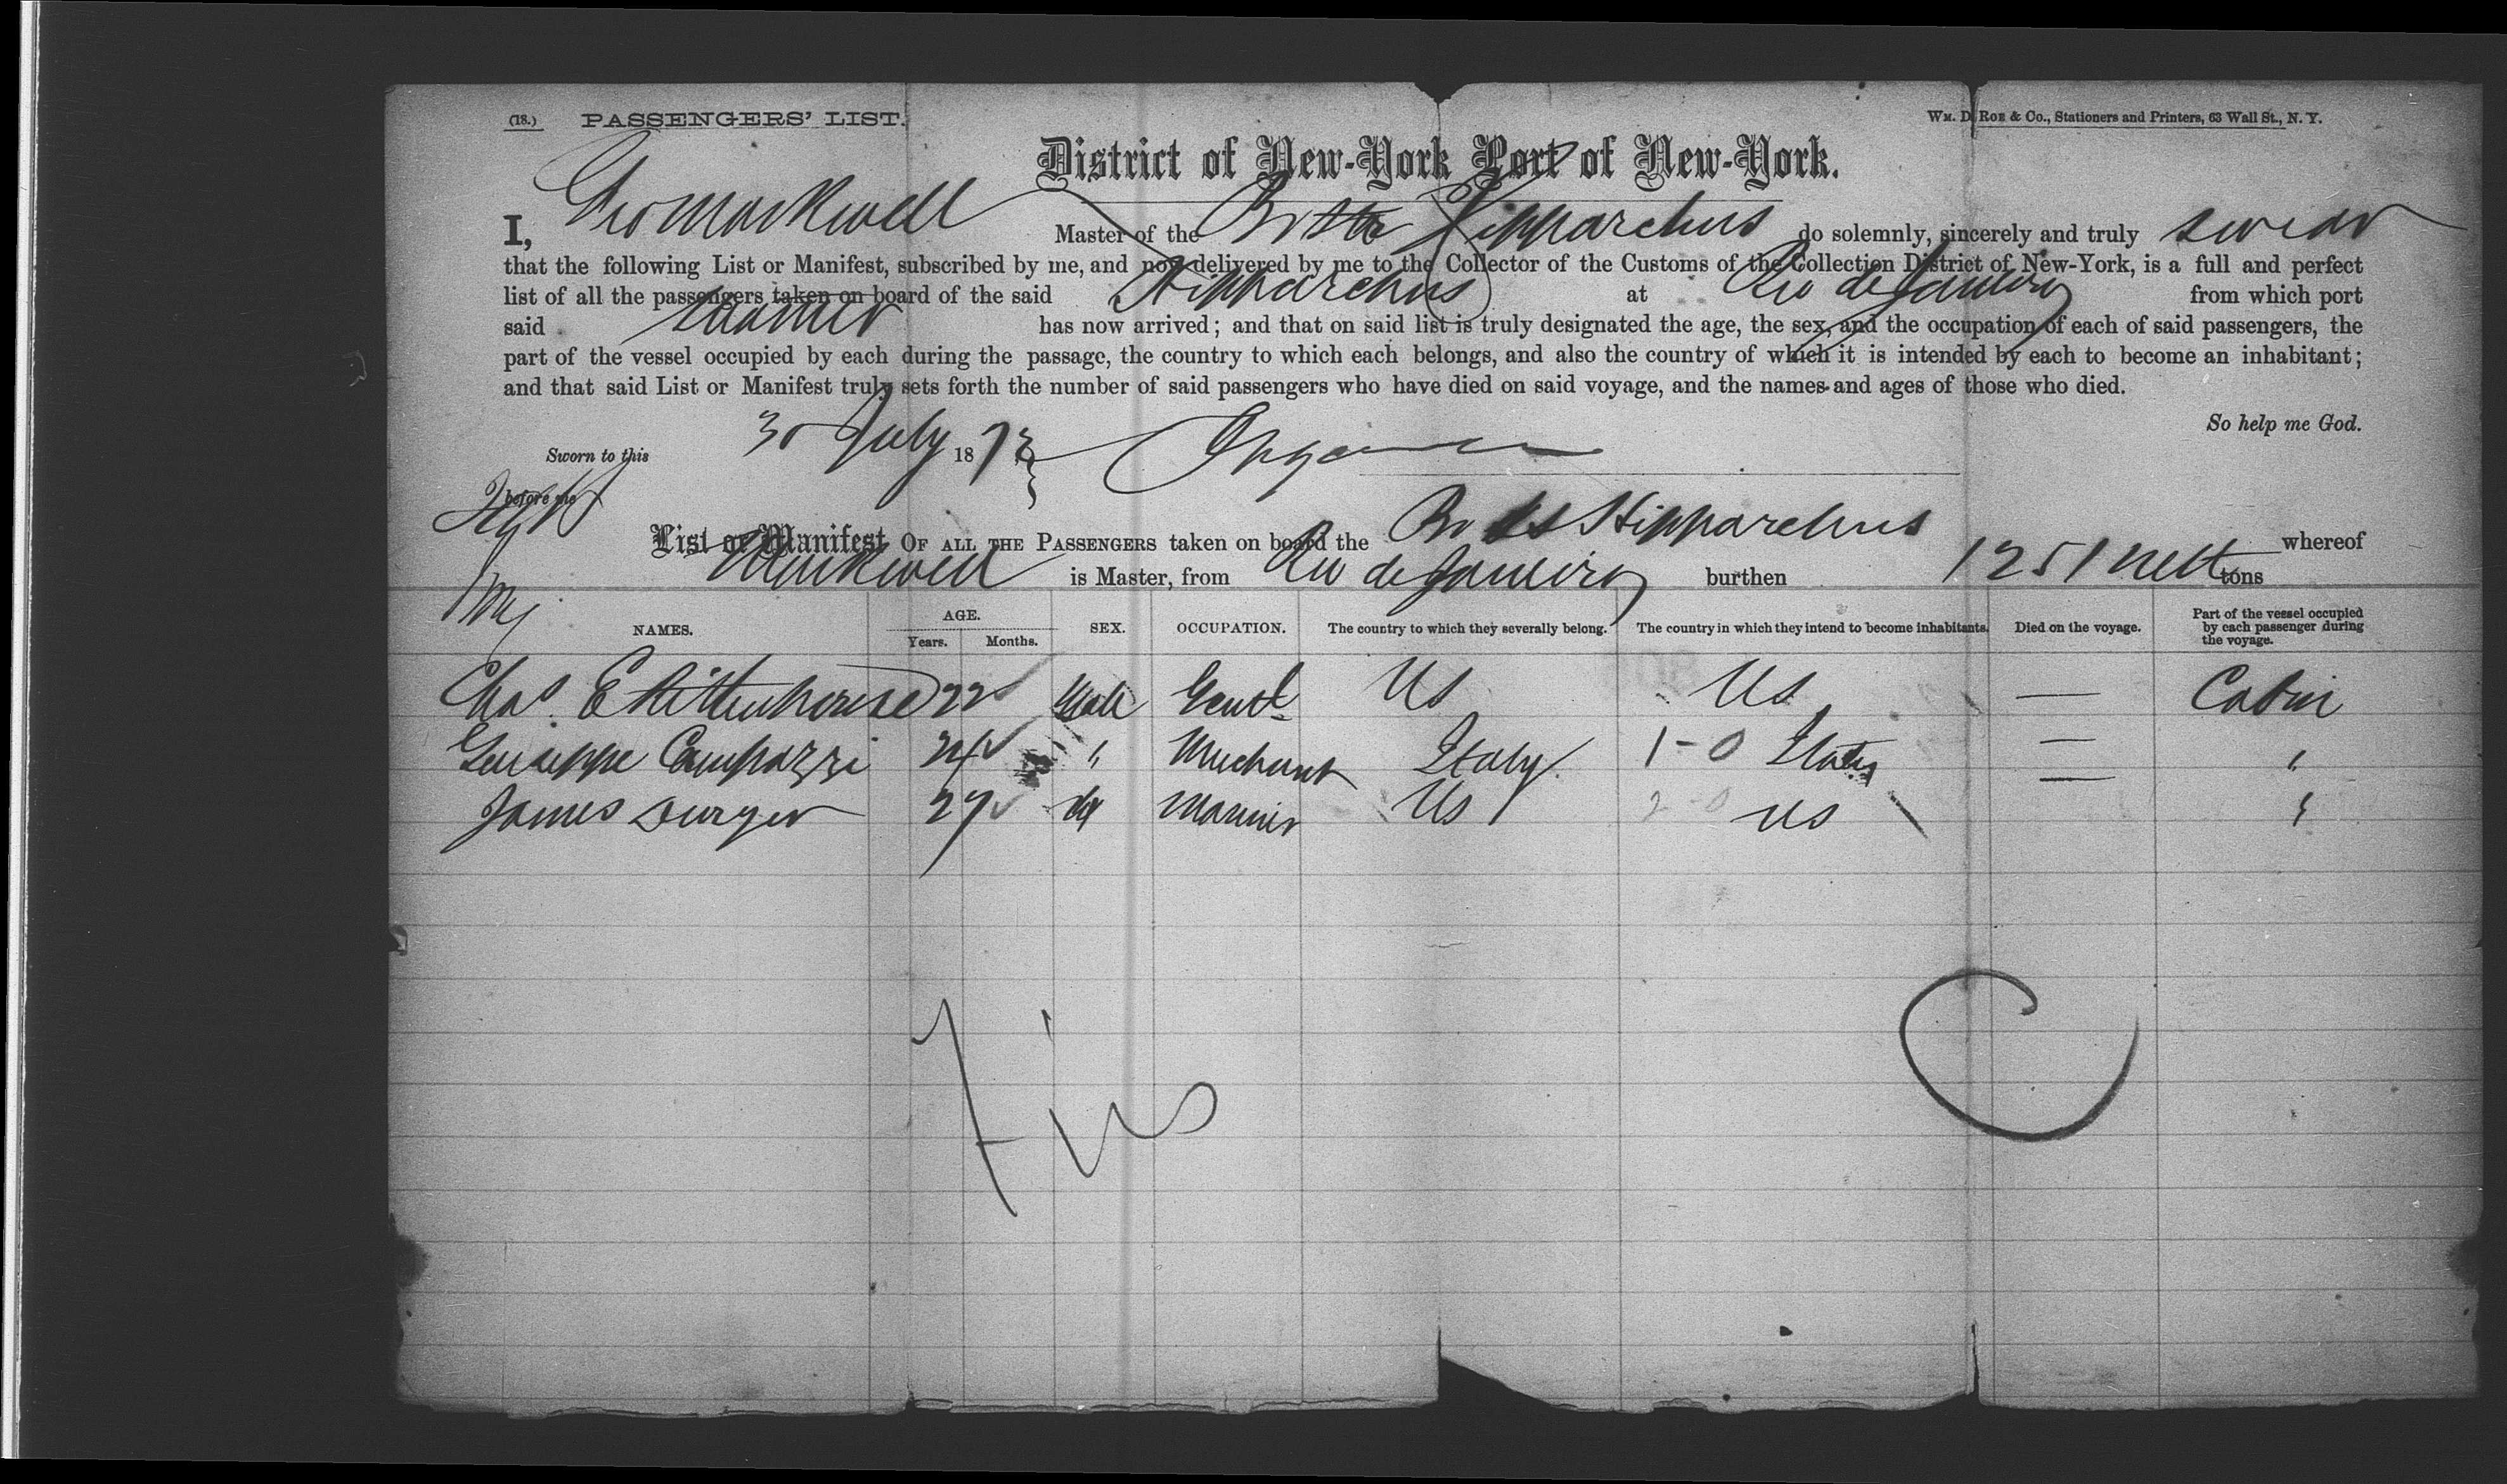 (18.) PASSENGERS' LIST. WM. D. ROE & Co., Stationers and Printers, 63 Wall St., N. Y.
District of New-York Port of New-York.
I, Geo Markwell Master of the Br Str Hipparchus do solemnly, sincerely and truly swear
that the following List or Manifest, subscribed by me, and now delivered by me to the Collector of the Customs of the Collection District of New-York, is a full and perfect
list of all the passengers taken on board of the said Hipparchus at Rio de Janeiro from which port
said steamer has now arrived; and that on said list is truly designated the age, the sex, and the occupation of each of said passengers, the
part of the vessel occupied by each during the passage, the country to which each belongs, and also the country of which it is intended by each to become an inhabitant;
and that said List or Manifest truly sets forth the number of said passengers who have died on said voyage, and the names and ages of those who died.
So help me God.
Sworn to this 30 July 187
before me
List or Manifest OF ALL THE PASSENGERS taken on board the Br SS Hipparchus whereof
Markwell is Master, from Rio de Janeiro burthen 1251 nett tons
NAMES. AGE. Years. Months. SEX. OCCUPATION. The country to which they severally belong. The country in which they intend to become inhabitants. Died on the voyage. Part of the vessel occupied by each passenger during the voyage.
Chas. E Rittenhouse 22 Male Gentl US US — Cabin
Guiseppe Campazzi 24 " Merchant Italy 1-0 Italy — "
James Burger 27 M Mariner US 2-0 US — "
C